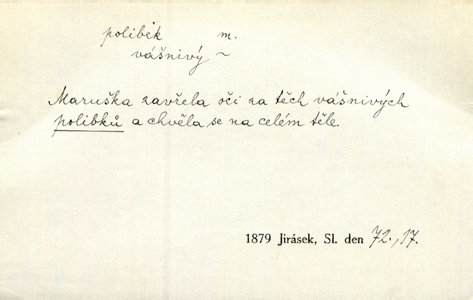 polibek m.
vášnivý ~
Maruška zavřela oči za těch vášnivých
polibků a chvěla se na celém těle.
1879 Jirásek, Sl. den 72., 17.